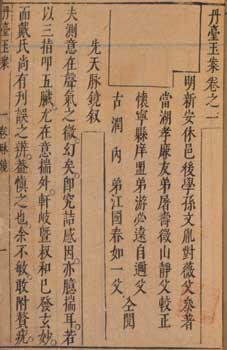 丹臺玉案卷之一
明新安休邑後學孫文胤對薇父叅著
當湖孝廉友弟屠壽徵山靜父較正
懷寧縣庠盟弟游必遠自邇父
古潤內弟江國春如一父
仝閱
先天脉鏡叙
夫測意在聲氣之微幻矣即究詰感因亦臆揣耳若
以三指叩五臟尤在意揣外軒岐暨叔和已發玄妙
而戴氏尚有刋誤之辨葢慎之也余不敏敢附贅疣
丹臺玉案 一卷脉鏡